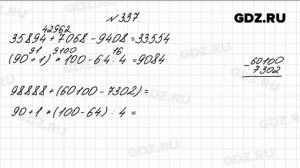 GDZ.RU
№ 337
42962
35894 + 7068 - 9408 = 33554
91 9100 16
(90 + 1) * 100 - 64 : 4 = 9084
- 60100
7302
98888 + (60100 - 7302) =
90 + 1 * (100 - 64) : 4 =